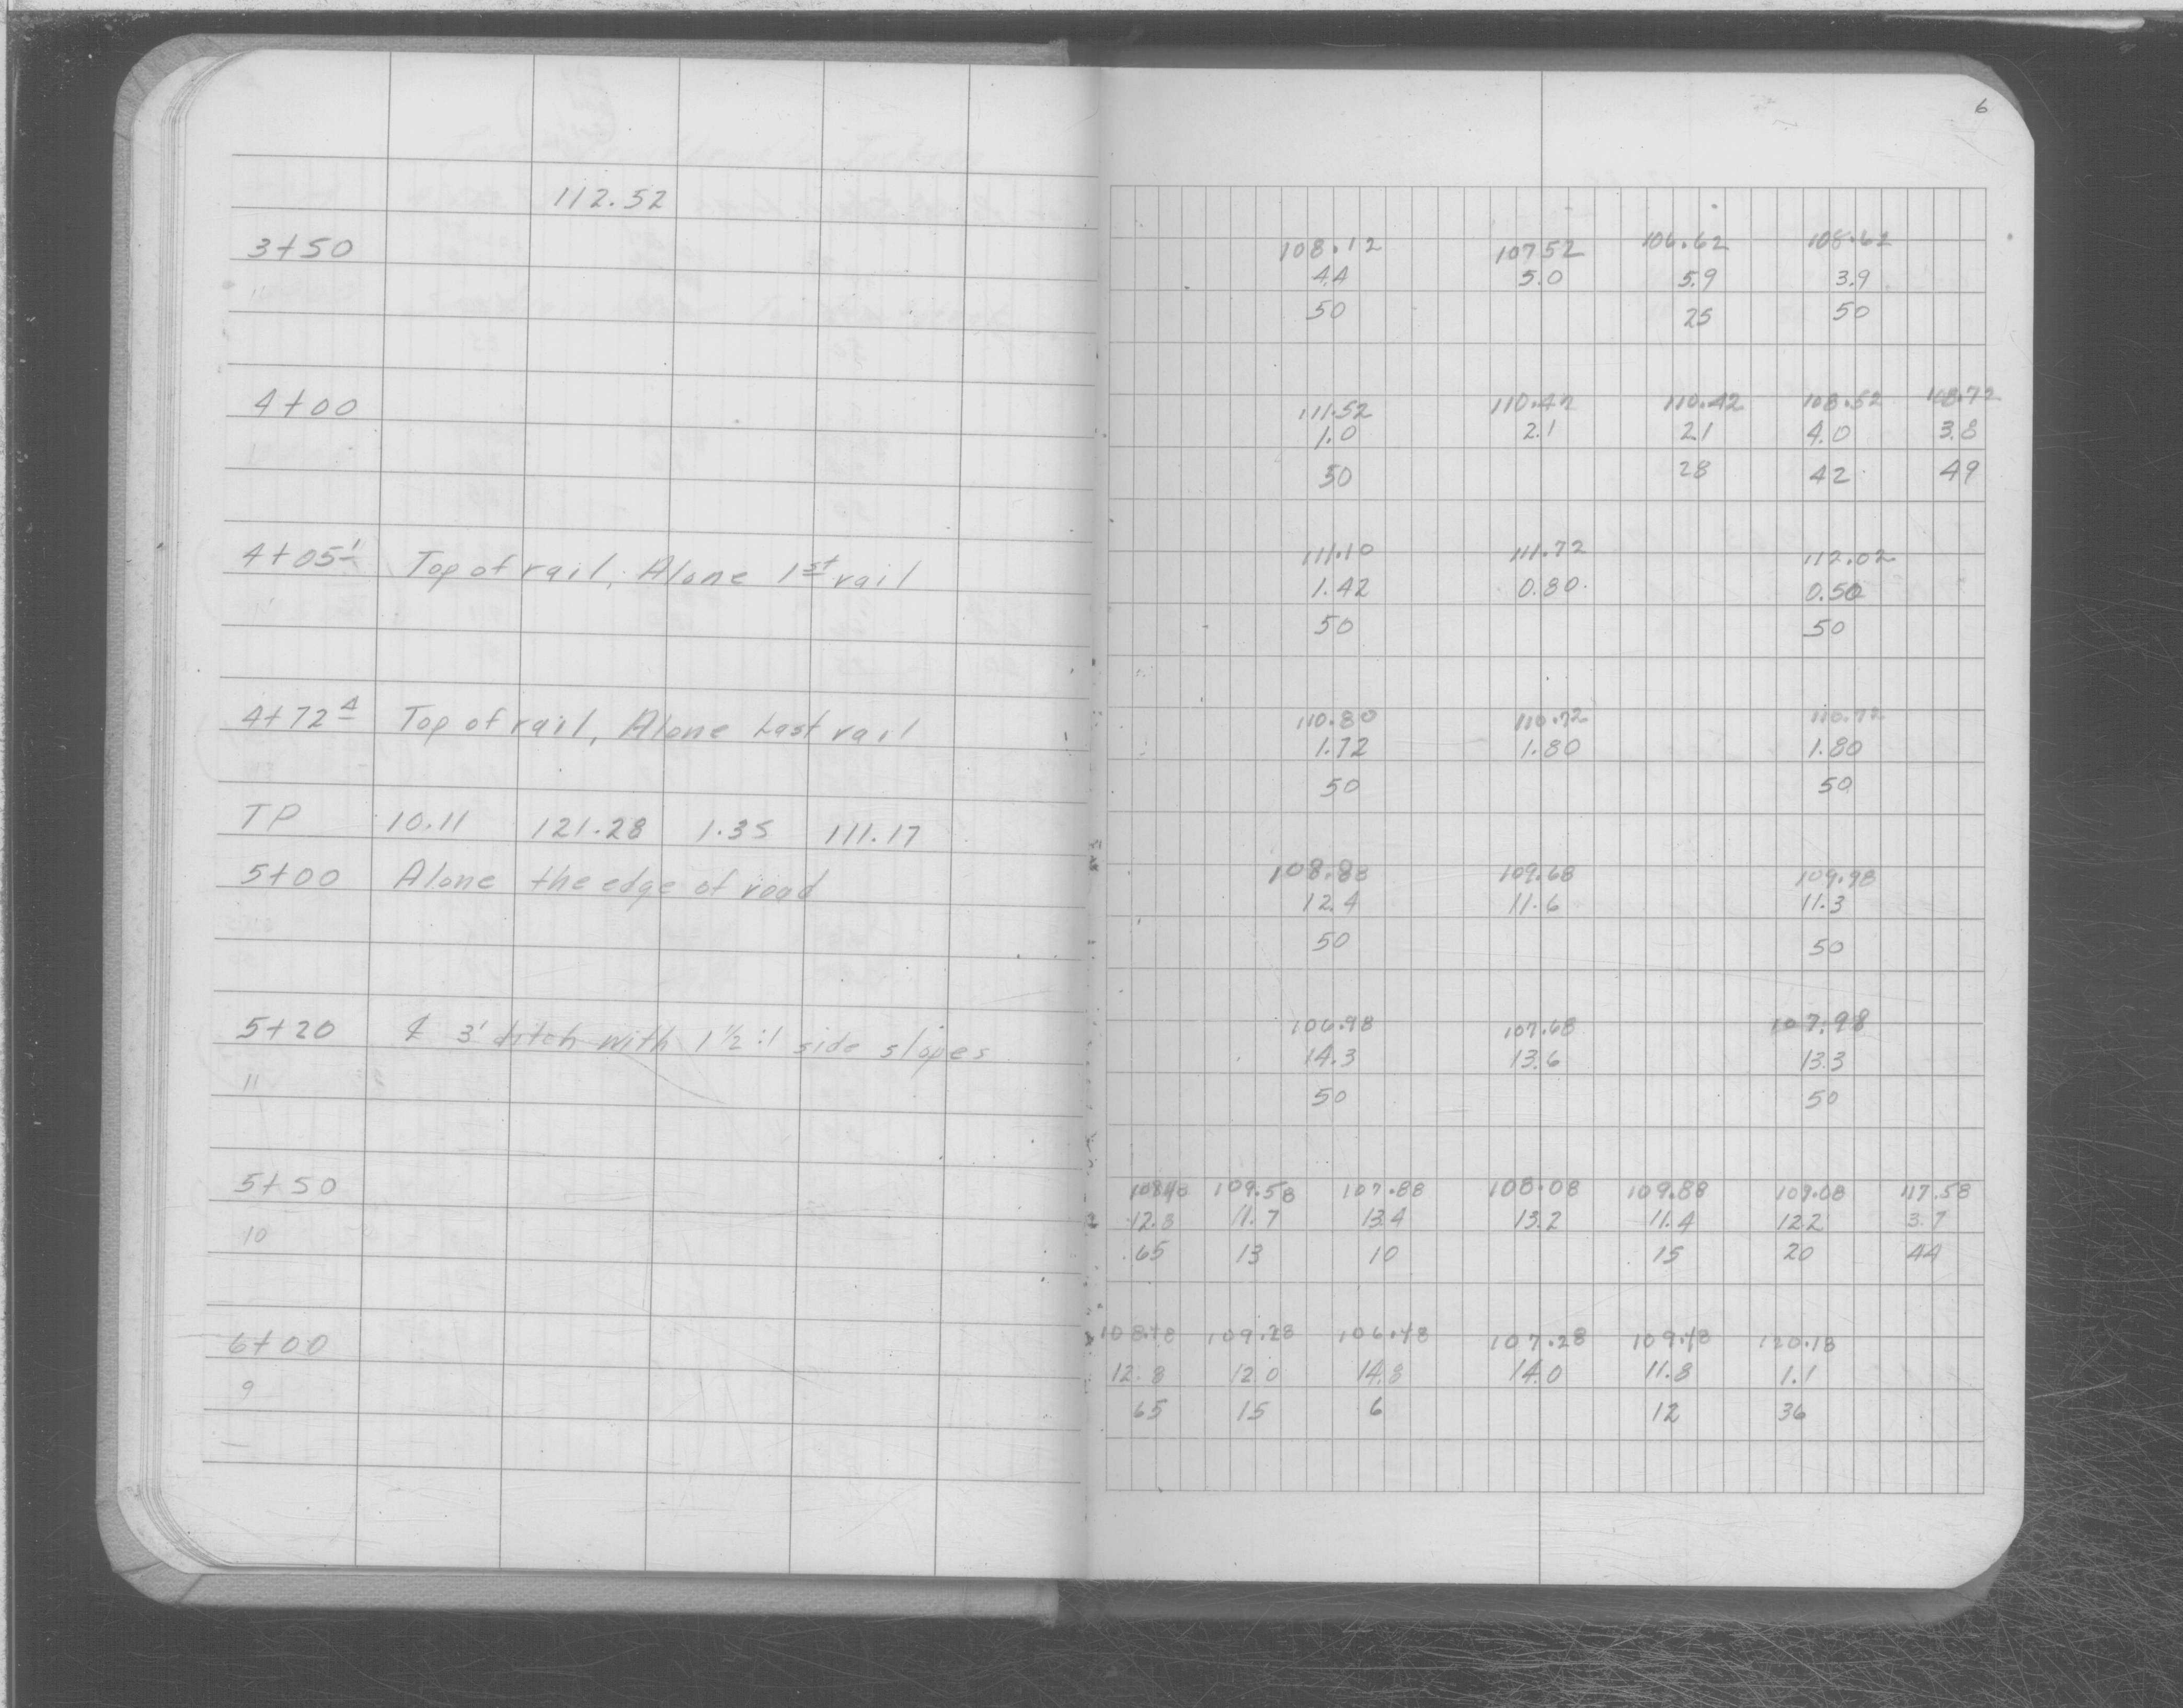 6
112.52
3+50 108.12 107 52 106.62 108.62
4.4 5.0 5.9 3.9
11 50 25 50
4+00 111.52 110.42 110.42 108.52 108.72
1.0 2.1 21 4.0 3.8
50 28 42 49
4+05 1 Top of rail, Alone 1st rail 111.10 111.72 112.02
1.42 0.80 0.50
50 50
4+72 4 Top of rail, Alone Last rail 110.80 110.72 110.72
1.72 1.80 1.80
50 50
TP 10.11 121.28 1.35 111.17
5+00 Alone the edge of road 108.88 109.68 109.98
12.4 11.6 11.3
50 50
5+20 ⅊ 3' ditch with 1 1/2 :1 side slopes 106.98 107.68 107.98
14.3 13.6 13.3
11 50 50
5+50 108.48 109.58 107.88 108.08 109.88 109.08 117.58
12.8 11.7 13.4 13.2 11.4 12.2 3.7
10 65 13 10 15 20 44
6+00 108.48 109.28 106.48 107.28 109.48 120.18
12.8 12.0 14.8 14.0 11.8 1.1
9 65 15 6 12 36